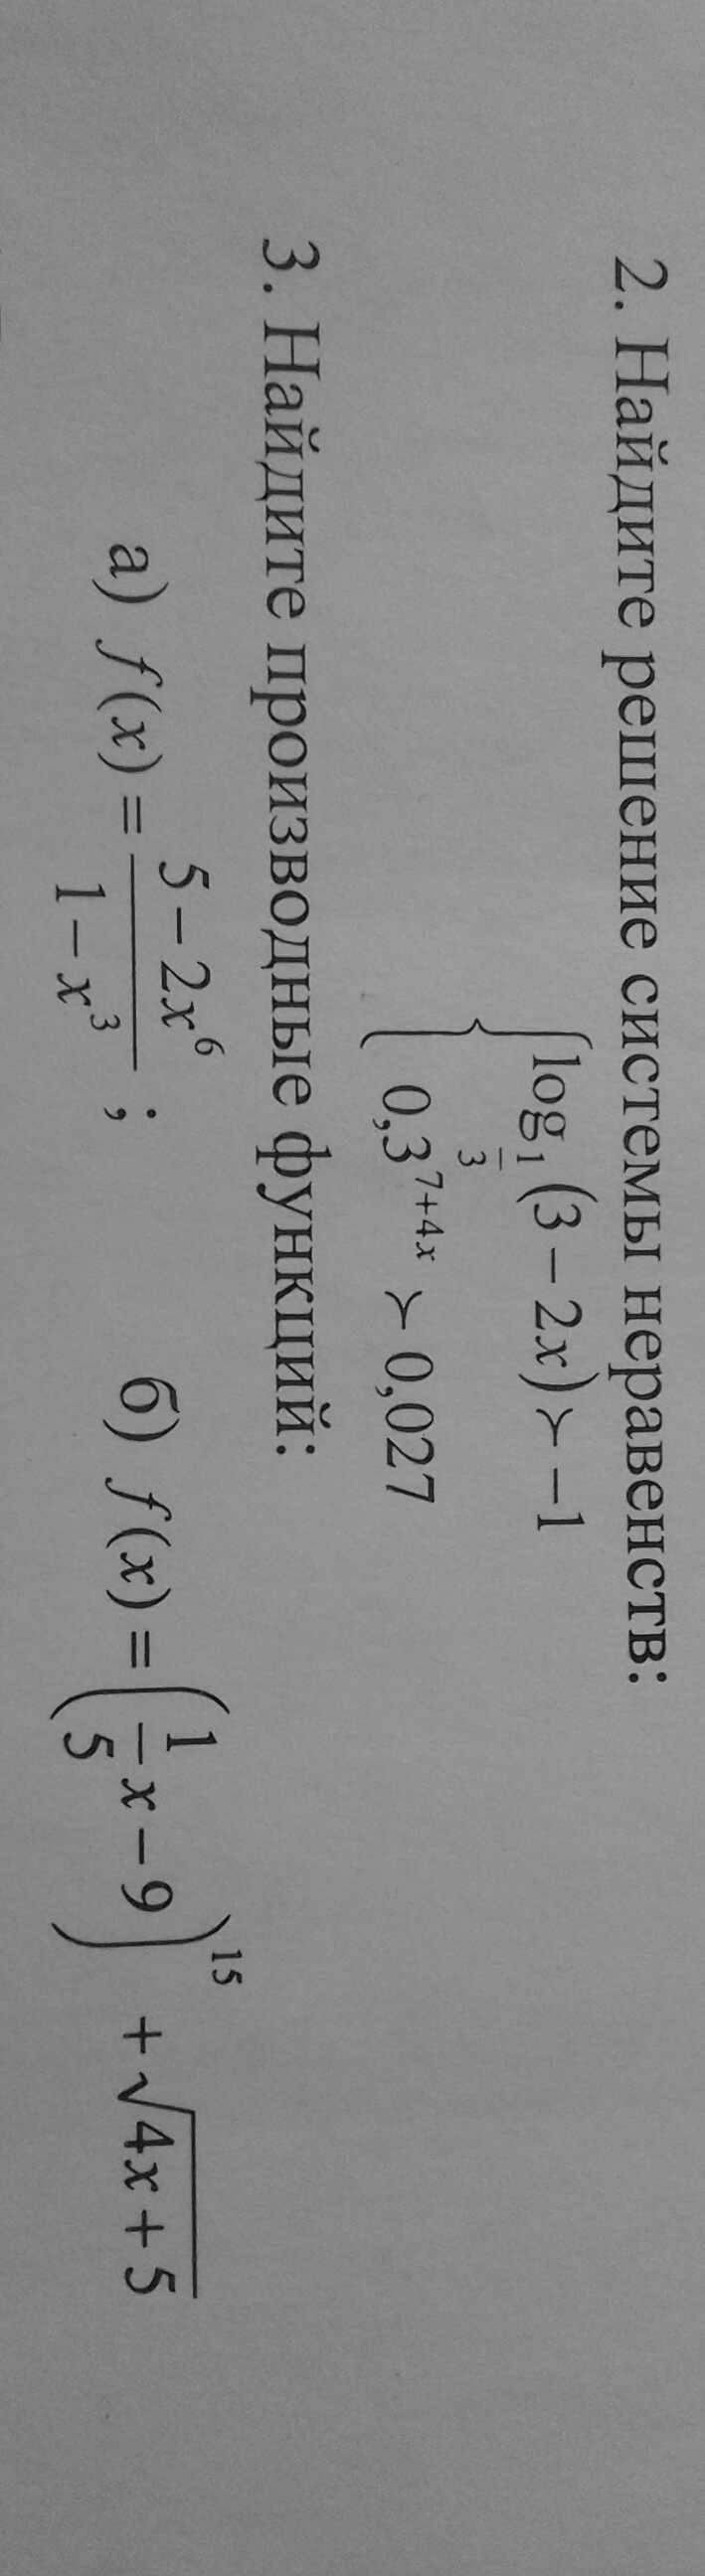 2. Найдите решение системы неравенств:
{ log_{1/3}(3 − 2x) ≻ −1
0,3^{7+4x} ≻ 0,027
3. Найдите производные функций:
а) f(x) = \frac{5 − 2x^6}{1 − x^3}; б) f(x) = (\frac{1}{5}x − 9)^{15} + √(4x + 5)